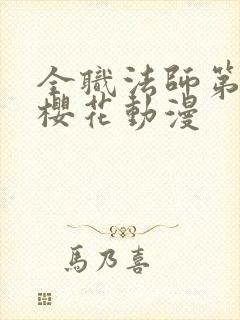 全職法師第
櫻花動漫
馬乃喜